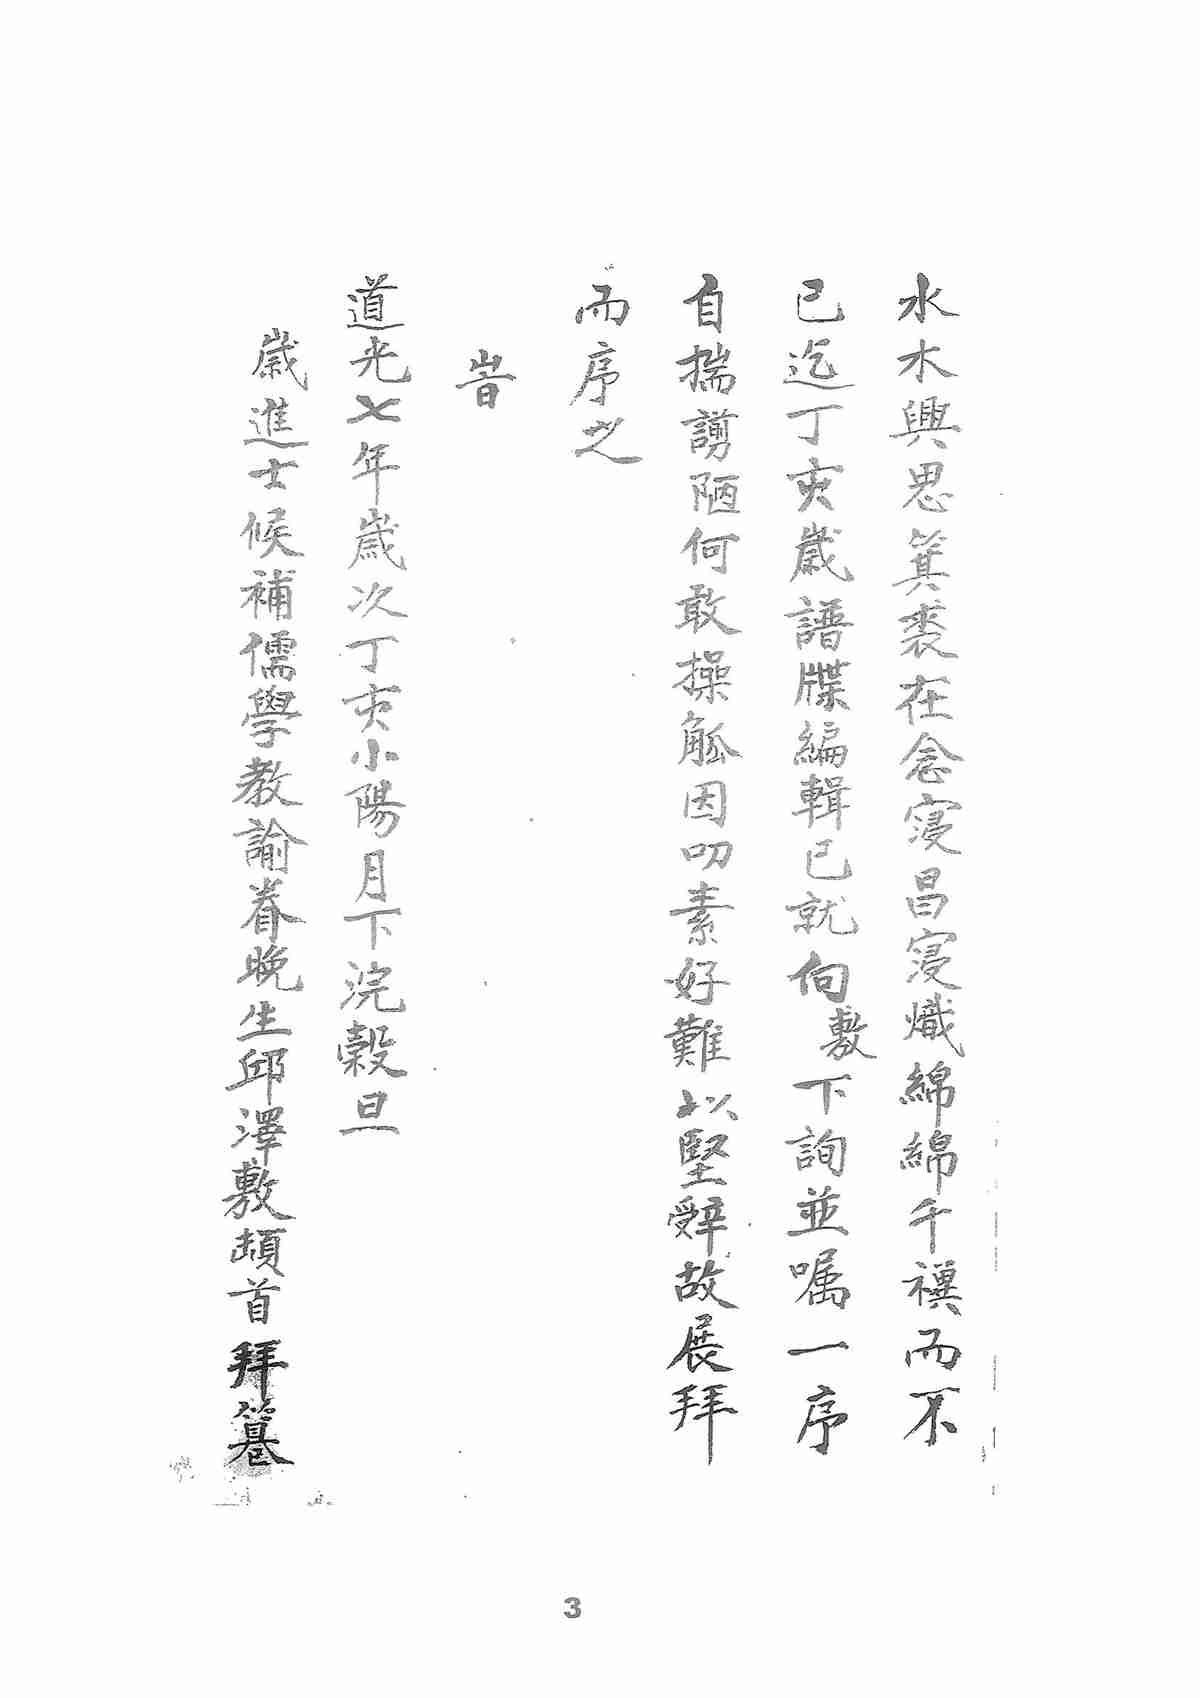 水木興思箕裘在念寖昌寖熾綿綿千禩而不
已迄丁亥歲譜牒編輯已就向敷下詢並嘱一序
自揣謭陋何敢操觚因叨素好難以堅辭故展拜
而序之
旹
道光七年歲次丁亥小陽月下浣穀旦
歲進士候補儒學教諭眷晚生邱澤敷頓首拜篹
3